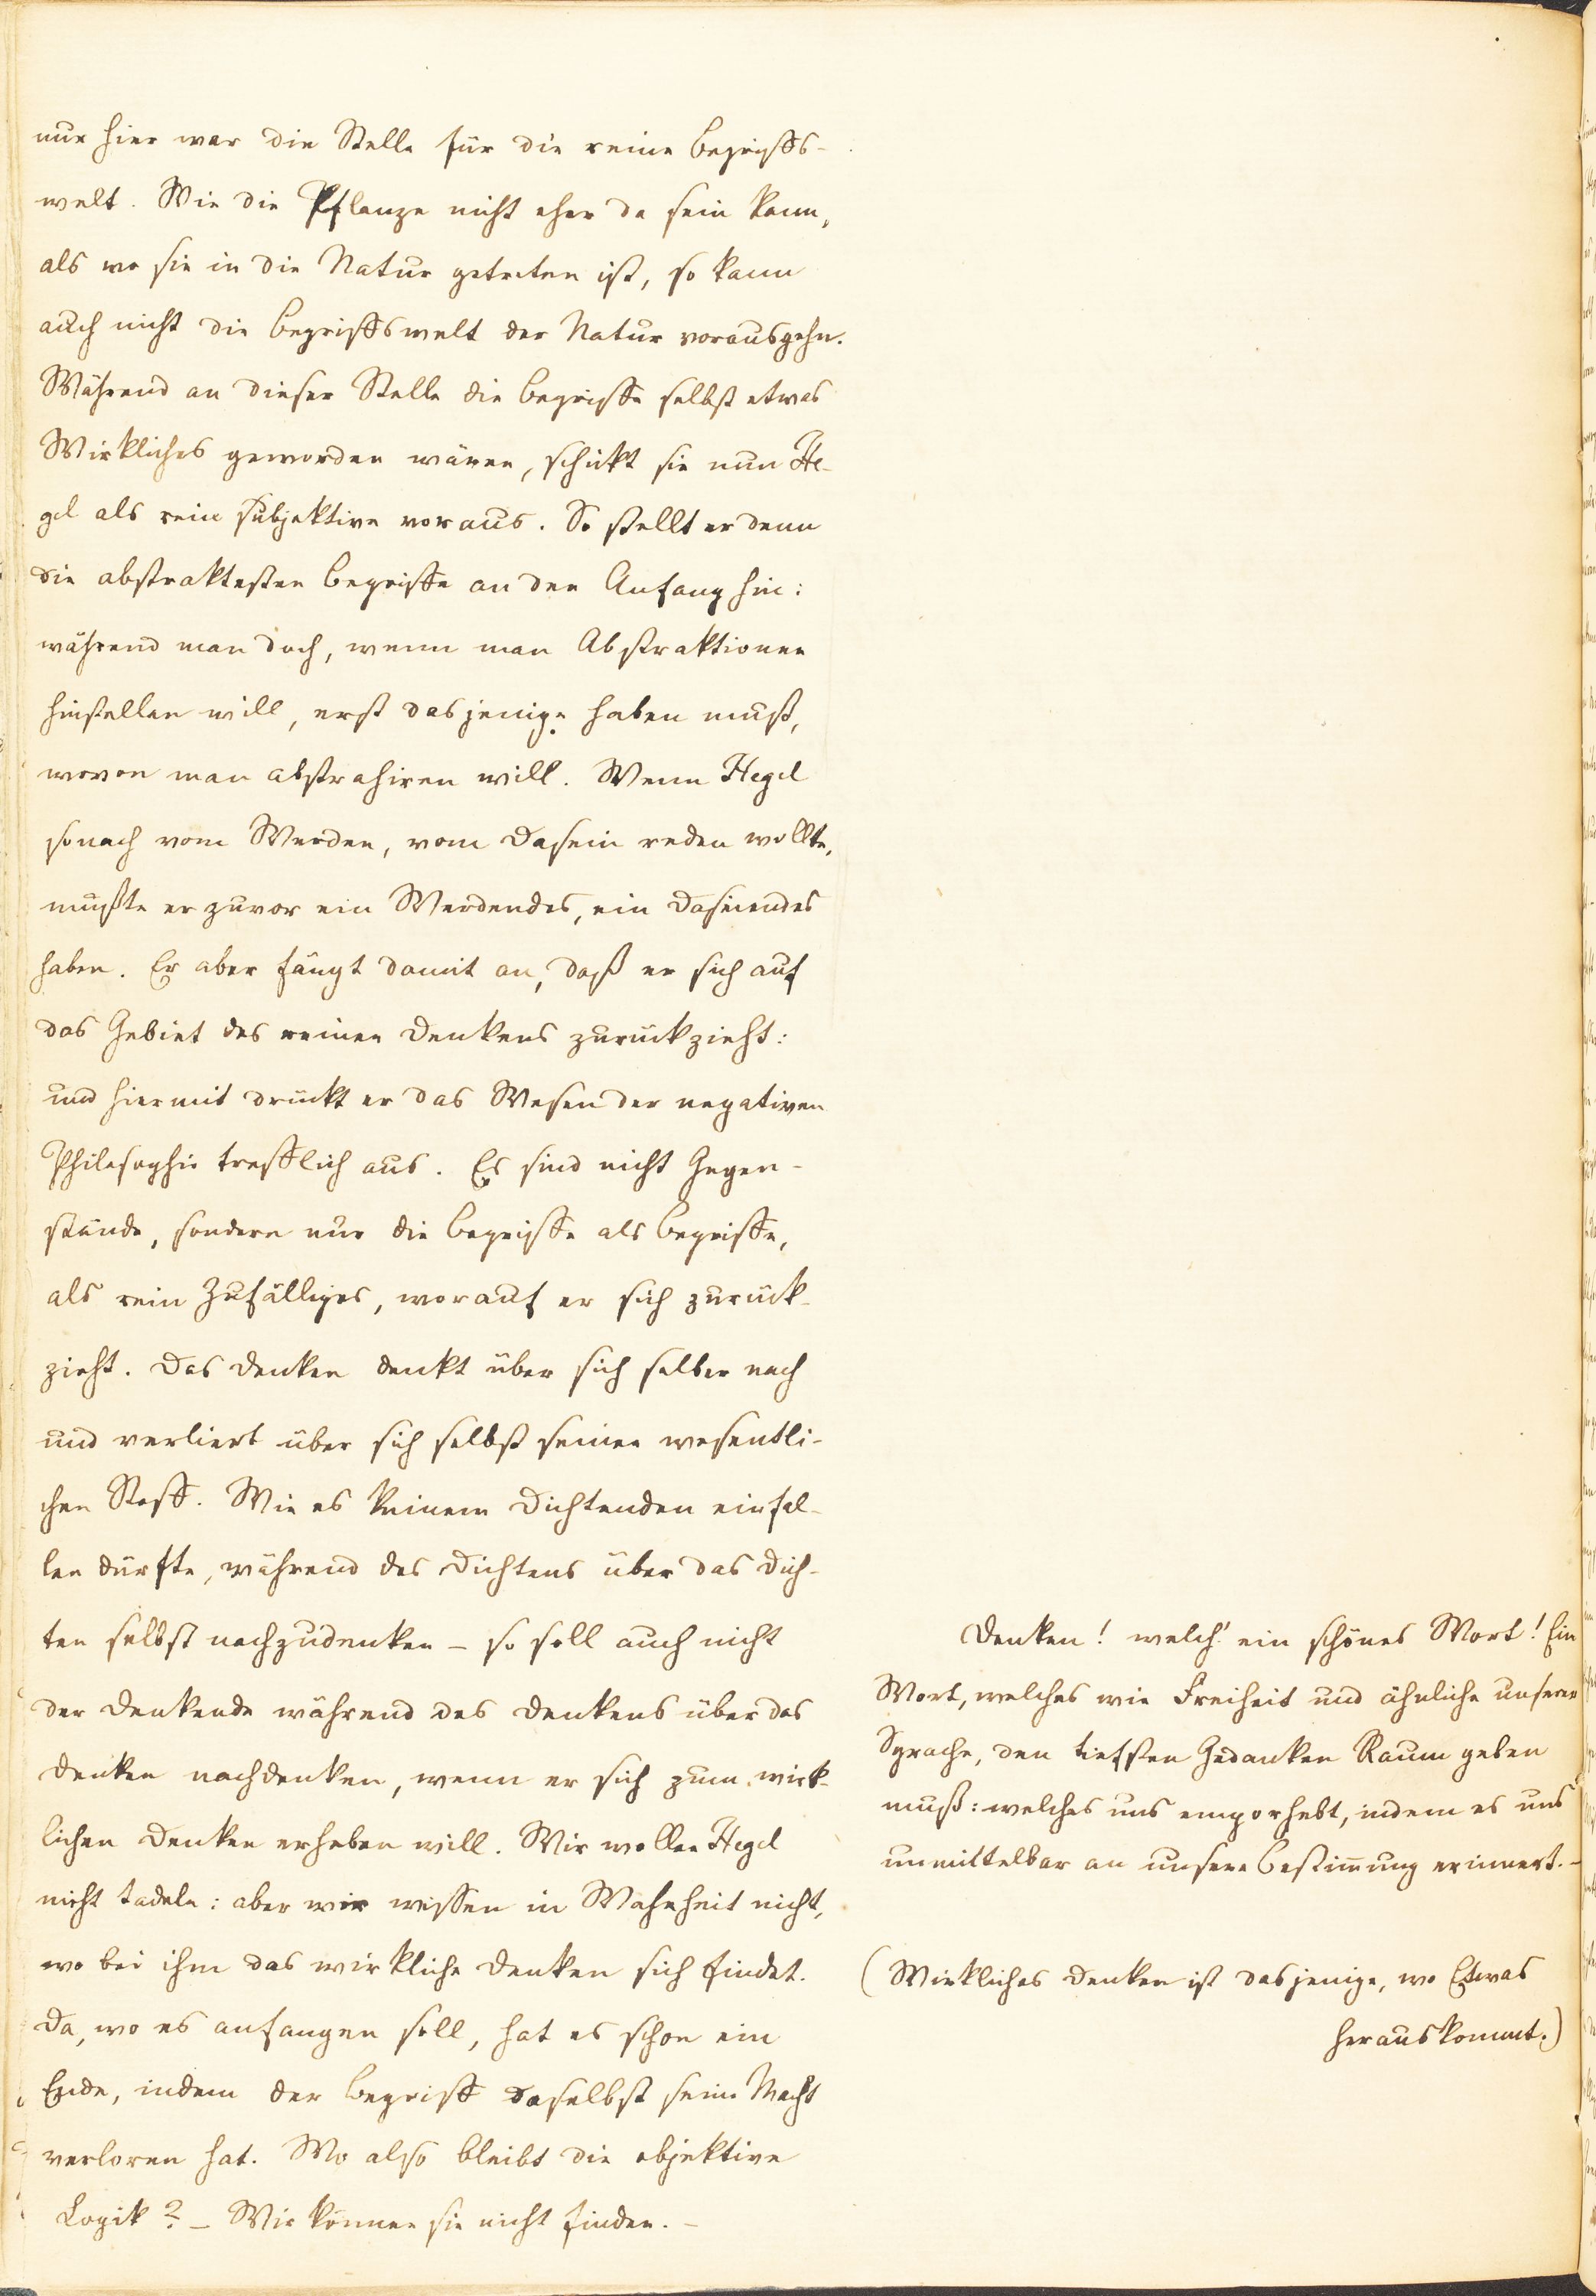 nur hier war die Stelle für die reine Begriffs-
welt. Wie die Pflanze nicht eher da sein kann,
als wo sie in die Natur getreten ist, so kann
auch nicht die Begriffswelt der Natur vorausgehn.
Während an dieser Stelle die Begriffe selbst etwas
Wirkliches geworden wären, schickt sie nun He-
gel als rein subjektive voraus. So stellt er denn
die abstraktesten Begriffe an den Anfang hin:
während man doch, wenn man Abstraktionen
hinstellen will, erst dasjenige haben muß,
wovon man abstrahiren will. Wenn Hegel
sonach vom Werden, vom Dasein reden wollte,
mußte er zuvor ein Werdendes, ein Daseiendes
haben. Er aber fängt damit an, daß er sich auf
das Gebiet des reinen Denkens zurückzieht:
und hiermit drückt er das Wesen der negativen
Philosophie trefflich aus. Es sind nicht Gegen-
stände, sondern nur die Begriffe als Begriffe,
als rein Zufälliges, worauf er sich zurück-
zieht. Das Denken denkt über sich selber nach
und verliert über sich selbst seinen wesentli-
chen Stoff. Wie es keinem Dichtenden einfal-
len dürfte, während des Dichtens über das Dich-
ten selbst nachzudenken – so soll auch nicht
der Denkende während des Denkens über das
Denken nachdenken, wenn er sich zum wirk-
lichen Denken erheben will. Wir wollen Hegel
nicht tadeln: aber wir wissen in Wahrheit nicht,
wo bei ihm das wirkliche Denken sich findet.
Da, wo es anfangen soll, hat es schon ein
Ende, indem der Begriff daselbst seine Macht
verloren hat. Wo also bleibt die objektive
Logik? – Wir können sie nicht finden. –
Denken! welch' ein schönes Wort! Ein
Wort, welches wie Freiheit und ähnliche unserer
Sprache, den tiefsten Gedanken Raum geben
muß: welches uns emporhebt, indem es uns
unmittelbar an unsere Bestim̅ung erinnert. –
(Wirkliches Denken ist dasjenige, wo Etwas
herauskommt.)